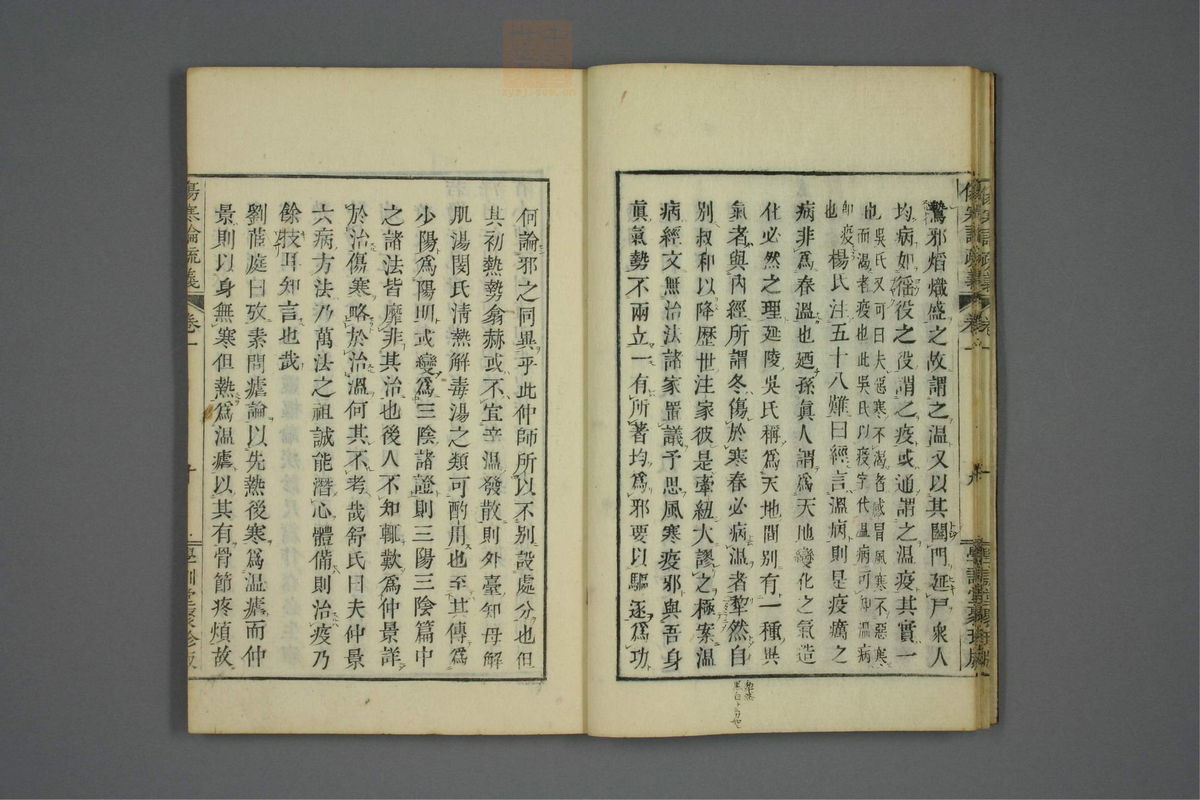 驁邪熠熾盛之故謂之温又以其闔門延戸衆人
均病如徭役之役謂之疫或通謂之温疫其實一
也吳氏又可曰夫惡寒不渴者感冒風寒不惡寒
而渴者疫也此吳氏以疫字代温病可知温病
即疫也
楊氏注五十八難曰經言温病則是疫癘之
病非爲春温也廼孫眞人謂爲天地變化之氣造
化必然之理延陵吳氏稱爲天地間別有一種異
氣者與内經所謂冬傷於寒春必病温者犂然自
別叔和以降歴世注家彼是牽紐大謬之極案温
病經文無治法諸家置議予思風寒疫邪與吾身
眞氣勢不兩立一有所著均爲邪要以驅逐爲功
何論邪之同異乎此仲師所以不別設處分也但
其初熱勢翕赫或不宜辛温發散則外臺知母解
肌湯閔氏清熱解毒湯之類可酌用也至其傳爲
少陽爲陽明或變爲三陰諸證則三陽三陰篇中
之諸法皆靡非其治也後人不知輒歎爲仲景詳
於治傷寒略於治温何其不考哉舒氏曰夫仲景
六病方法乃萬法之祖誠能潛心體備則治疫乃
餘技耳知言也哉
劉茝庭曰攷素問瘧論以先熱後寒爲温瘧而仲
景則以身無寒但熱爲温瘧以其有骨節疼煩故
傷寒論疏義
卷一
十
學訓堂聚珍版